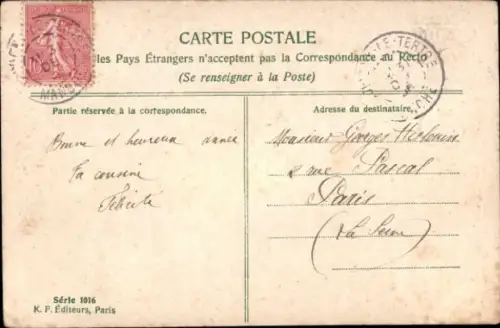 CARTE POSTALE
les Pays Étrangers n'acceptent pas la Correspondance au Recto
(Se renseigner à la Poste)
Partie réservée à la correspondance.
Adresse du destinataire.
Bonne et heureuse année
Ta cousine
Félicite
Monsieur Georges
8 rue Pascal
Paris
(La Seine)
Série 1016
K. F. Éditeurs, Paris